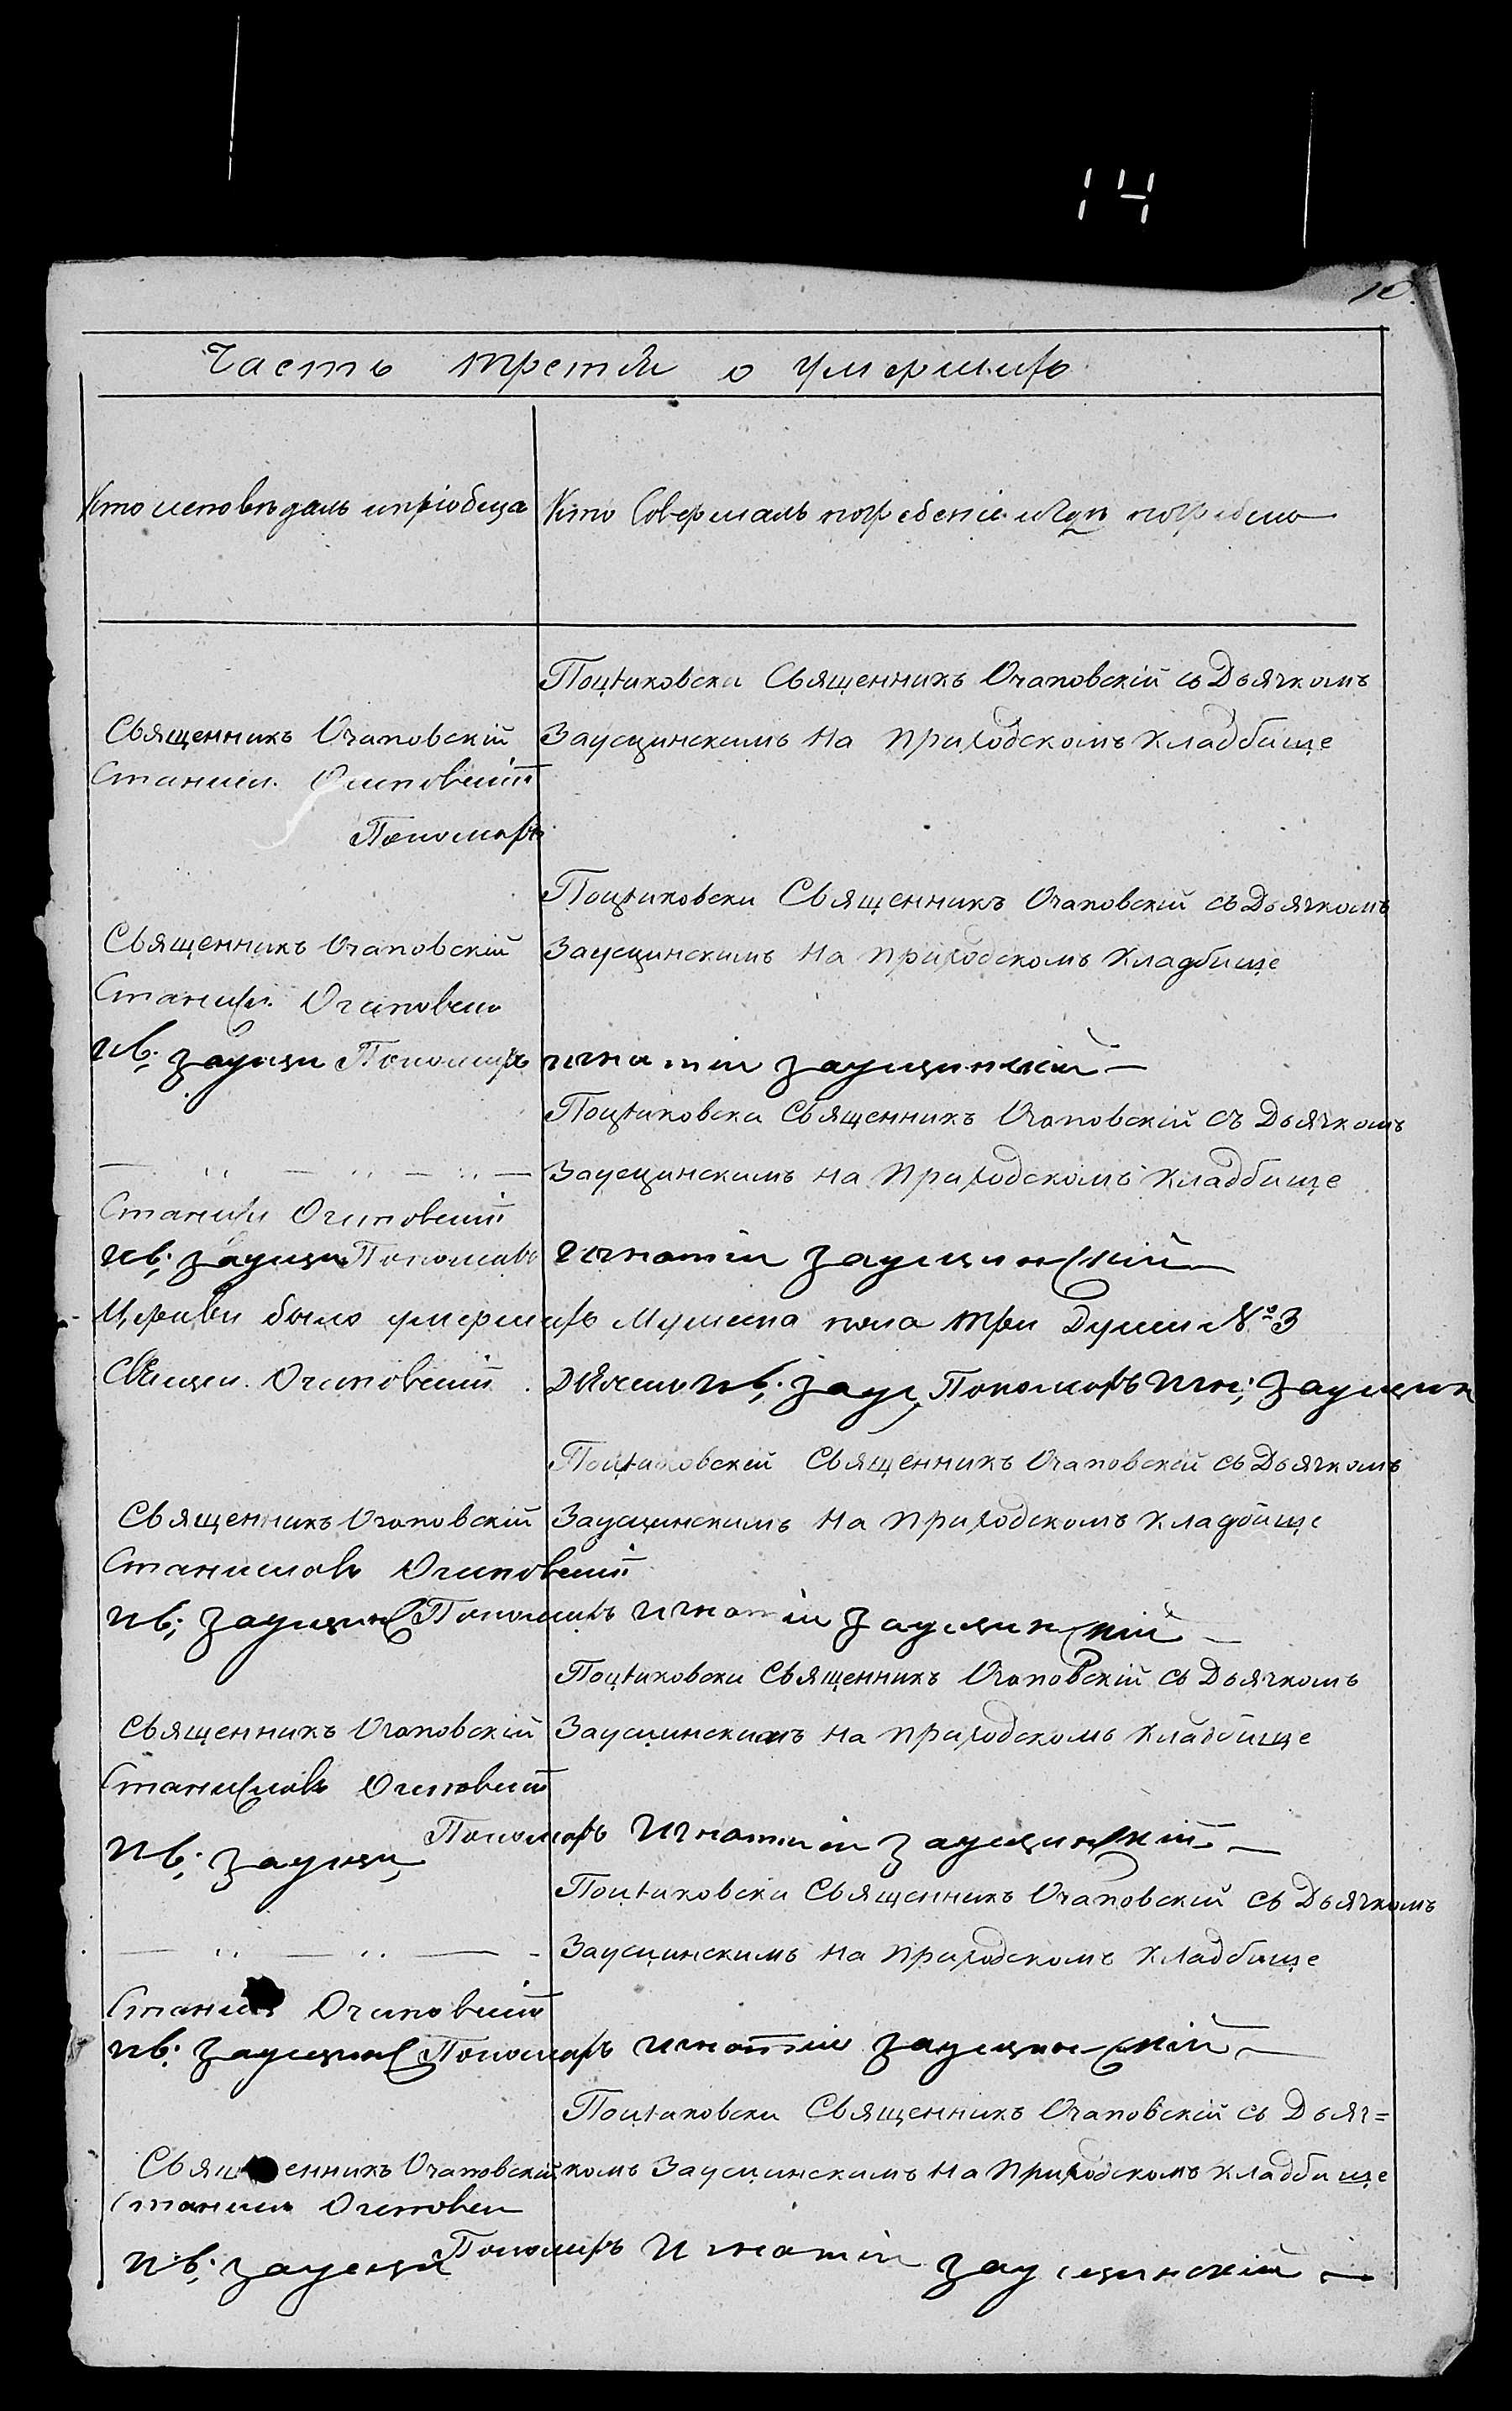 14
10.
Часть третія о умершихъ
Кто исповѣдалъ и пріобща
Кто Совершалъ погребеніе и гдѣ погребено
Поцѣиковски Священникъ Очаповскій съ Дьячкомъ
Священникъ Очаповскій Заусцинскимъ на приходскомъ кладбище
Станисл. Очаповскій
Пономарь
Поцѣиковски Священникъ Очаповскій съ Дьячкомъ
Священникъ Очаповскій Заусцинскимъ на приходскомъ кладбище
Станисл. Очаповски
ив; заусци Пономарь игнатій заусцинскій
Поцѣиковски Священникъ Очаповскій съ Дьячкомъ
— ,, — ,, — ,, — Заусцинскимъ на приходскомъ кладбище
Станисл Очаповскій
ив; заусци Пономарь игнатій заусцинскій
Церкви было умершихъ Мужеска пола три души № 3
Священ. Очаповскій. Дьячекъ ив; заус, Пономарь игн; заусцин
Поцѣиковскій Священникъ Очаповскій съ Дьячкомъ
Священникъ Очаповскій Заусцинскимъ на приходскомъ кладбище
Станиславъ Очаповскій
ив; заусцинс Пономарь игнатій заусцинскій
Поцѣиковски Священникъ Очаповскій съ Дьячкомъ
Священникъ Очаповскій Заусцинскимъ на приходскомъ кладбище
Станиславъ Очаповскій
ив; заусци, Пономарь игнатій заусцинскій
Поцѣиковски Священникъ Очаповскій съ Дьячкомъ
— ,, — ,, — - Заусцинскимъ на приходскомъ кладбище
Станисл Очаповскій
ив; заусцинс Пономарь игнатій заусцинскій
Поцѣиковски Священникъ Очаповскій съ Дьяч=
Священникъ Очаповскій комъ Заусцинскимъ на приходскомъ кладбище
Станисл Очаповски
ив; заусци Пономарь игнатій заусцинскій